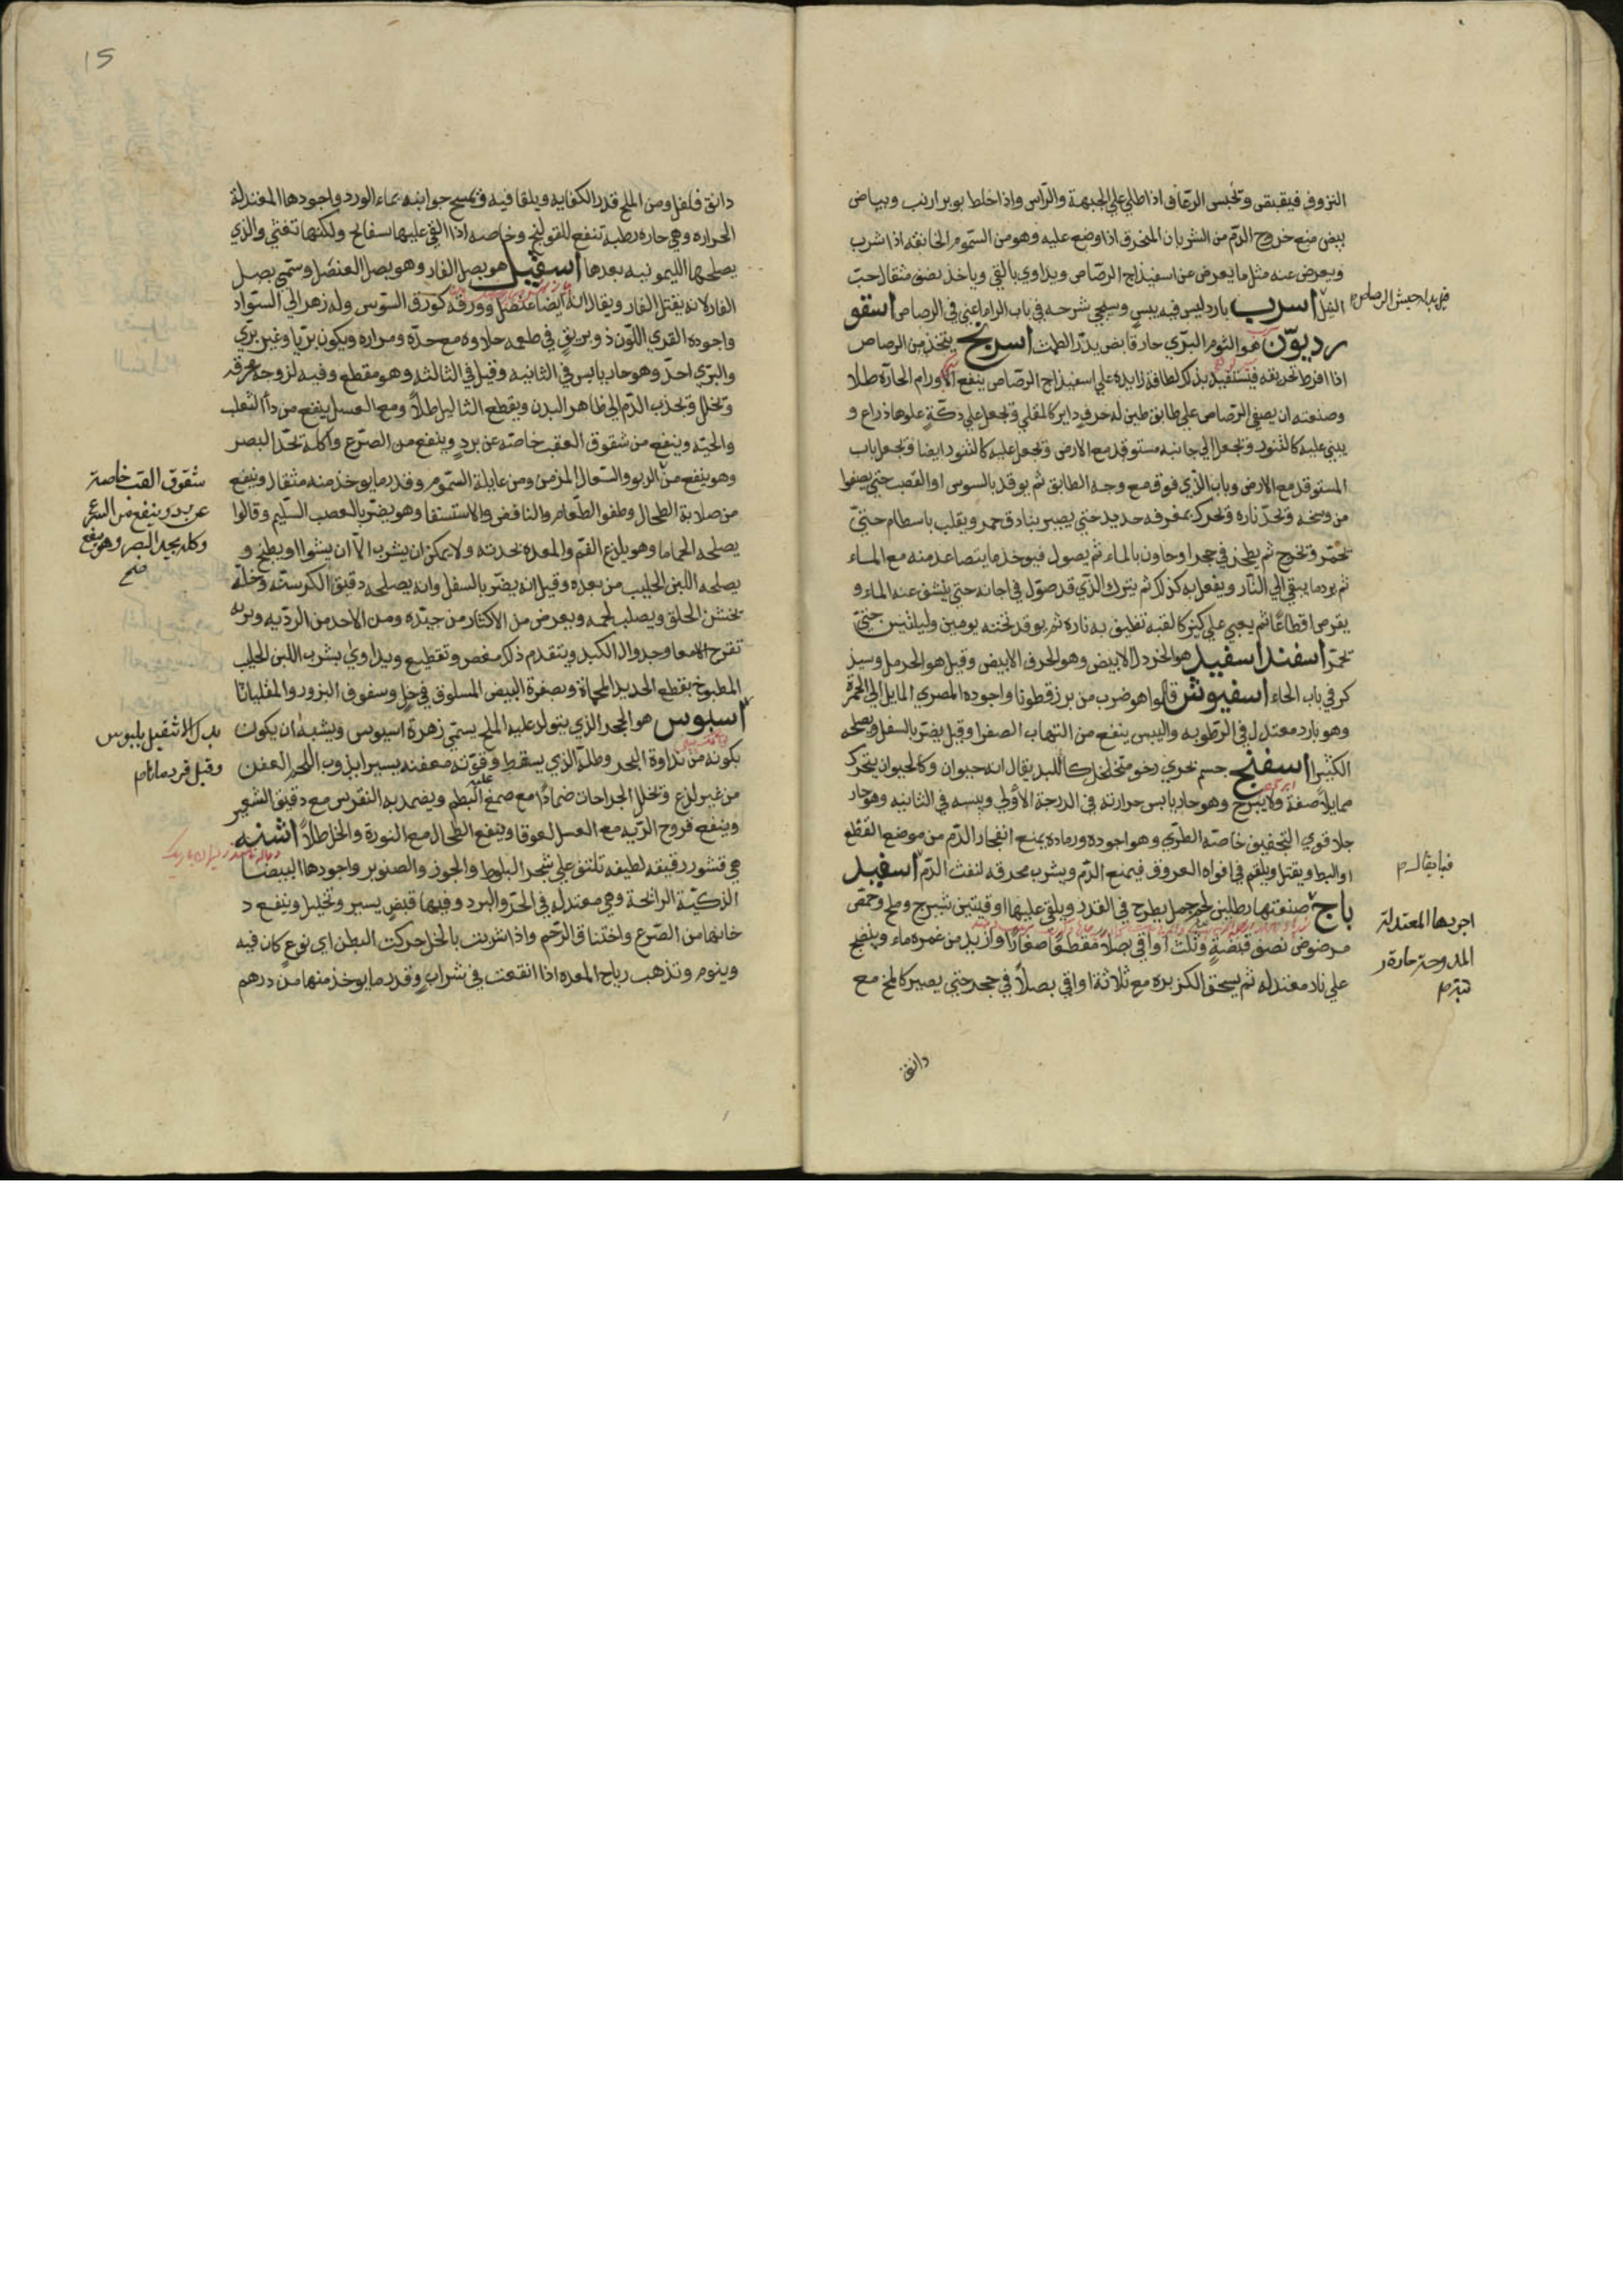 النزوف فيقبقي وتحبس الرعاف اذا طلي علي الجبهة والرأس واذا خلط بوبر ارنب وبياض
بيض منع خروج الدم من الشريان المنخرق اذا وضع عليه وهو من السموم الخانقه اذا شرب
ويعرض عنه مثل ما يعرض عن اسفيذاج الرصاص ويداوي بالقي وياخذ نصف مثقال حب
النيل اسرب بارد ليس فيه يبس وسيجي شرحه في باب الرا ما عني في الرصاص اسقو
رديون هو الثوم البري حار قابض يدر الطمث اسرنج يتخذ من الرصاص
اذا افرط تحريقه فيستفيد بذلك لطافة زايده علي اسفيذاج الرصاص ينفع الاورام الحارة طلا
وصنعته ان يصفي الرصاص علي طابق طين له حرف داير كالمقلي وتجعل علي دكة علوها ذراع و
يبني عليه كالتنور وتجعل الي جانبه مستوقد مع الارض وتجعل عليه كالتنور ايضا وتجعل باب
المستوقد مع الارض وباب الذي فوق مع وجه الطابق ثم يوقد بالسوس او القصب حتي يصفوا
من وسخه وتحد ناره وتحرك بمغرفه حديد حتي يصير بنادق حمر ويقلب باسطام حتي
تحمر وتخرج ثم يطحن في حجر او هاون بالماء ثم يصول فيوخذ ما يتصاعد منه مع الماء
ثم يرد ما يبقي الي النار ويفعل به كذلك ثم يترك الذي قد صول في اجانه حتي ينشف عنه الماء و
يقرص اقطاعا ثم يعبي علي كيز كالقبه تطبق به ناره ثم يوقد تحته يومين وليلتين حتي
تحمر اسفند اسفيد هو الخردل الابيض وهو الحرف الابيض وقيل هو الحرمل وسيذ
كر في باب الحاء اسفيوش قالوا هو ضرب من بزر قطونا واجوده المصري المايل الي الحمرة
وهو بارد معتدل في الرطوبه واليبس ينفع من التهاب الصفرا وقيل يضر بالسفل ويصلحه
الكثيرا اسفنج جسم بحري رخو متخلخل كاللبد يقال انه حيوان وكالحيوان يتحرك
مما يلاصقه ولا يبرح وهو حار يابس حرارته في الدرجة الاولي ويبسه في الثانيه وهو حار
جلا قوي التجفيف خاصة الطري وهو اجوده ورماده يمنع انفجار الدم من موضع القطع
او البط ويفتل ويلقم في افواه العروق فيمنع الدم ويشرب محرقه لنفث الدم اسفيد
باج صنعتها رطلين لحم حمل يطرح في القدر ويلقي عليها اوقيتين شيرج وملح وحمص
مرضوض نصف قبضة وثلث اواقي بصلا مقطعا صغارا وازيد من غمره ماء وينضج
علي نار معتدله ثم يسحق الكزبره مع ثلاثة اواقي بصلا في حجر حتي يصير كالمخ مع
دانق
فيما يقال م
اجودها المعتدلة
15
دانق فلفل ومن الملح قدر الكفايه ويلقا فيه وتمسح جوانبه بماء الورد واجودها المعتدلة
الحراره وهي حاره رطبه تنفع للقولنج وخاصه اذا القي عليها سفالج ولكنها تغثي والذي
يصلحها الليمونيه بعدها اسقيل هو بصل الفار وهو بصل العنصل وسمي بصل
الفار لانه يقتل الفار ويقال انه ايضا عنصل وورقه كورق السوس وله زهر الي السواد
واجوده القدي اللون ذو بريق في طعمه حلاوه مع حدة ومراره ويكون بريا وغير بري
والبري احد وهو حار يابس في الثانيه وقيل في الثالثه وهو مقطع وفيه لزوجه محرقه
وتحلل وتجذب الدم الي ظاهر البدن ويقطع الثاليل طلا ومع العسل ينفع من دأ الثعلب
والحيه وينفع من شقوق العقب خاصة عن برد وينفع من الصرع واكله تحد البصر
وهو ينفع من الربو والسعال المزمن ومن غايلة السموم وقدر ما يوخذ منه مثقال وينفع
من صلابة الطحال وطفو الطعام والنافض والاستسقا وهو يضر بالعصب السليم وقالوا
يصلحه الحماما وهو يلذع الفم والمعده بحدته ولا يمكن ان يشرب الا ان يشوا او يطبخ و
يصلحه اللبن الحليب من بعده وقيل انه يضر بالسفل وانه يصلحه دقيق الكرسنه وخله
تخشن الحلق ويصلب لحمه ويعرض من الاكثار من جيده ومن الاحد من الرديه وبريه
تقرح الامعا وجدوال الكبد ويتقدم ذلك مغص وتقطيع ويداوي بشرب اللبن الحليب
المطبوخ بقطع الحديد المحماة وبصفرة البيض المسلوق في خل وسفوف البزور والمقلياثا
اسيوس هو الحجر الذي يتولد عليه الملح يسمي زهرة اسيوس ويشبه ان يكون
بكونه من نداوة البحر وطله الذي يسقط عليه وقوته معفنه يسيرا يذوب اللحم العفن
من غير لذع وتحلل الجراحات ضمادا مع صمغ البطم ويضمد به النقرس مع دقيق الشعير
وينفع قروح الريه مع العسل لعوقا وينفع الطحال مع النورة والخل طلا اشنه
هي قشور رقيقه لطيفه تلتف علي شجر البلوط والجوز والصنوبر واجودها البيضا
الذكية الرائحة وهي معتدله في الحر والبرد وفيها قبض يسير وتحليل وينفع د
خانها من الصرع واختناق الرحم واذا شربت بالخل حركت البطن اي نوع كان فيه
وينوم وتذهب رياح المعده اذا انقعت في شراب وقدر ما يوخذ منها من درهم
شقوق القب خاصة
عن برد وينفع من الصرع
وكله يحد البصر وهو ينفع
صح
بدل الاشقيل بلبوس
وقيل قردمانا م